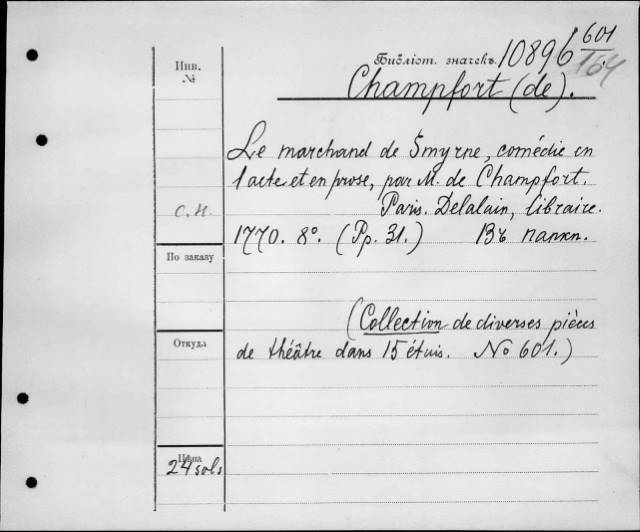 Инв.
№
Библіот. значекъ. 10896 601
164
Champfort (de).
Le marchand de Smyrne, comédie en
1 acte et en prose, par M. de Champfort.
С.Н. Paris. Delalain, libraire.
1770. 8°. (Pp. 31.) Въ папкѣ.
По заказу
(Collection de diverses pièces
Откуда
de théâtre dans 15 étuis. No 601.)
Цѣна
24 sols